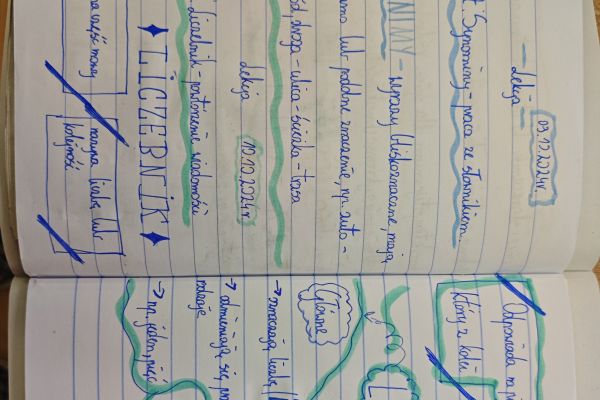 Lekcja 09.10.2024r.
t: Synonimy - praca ze słownikiem.
NIMY - wyrazy bliskoznaczne, mają
amo lub podobne znaczenie, np. auto -
ód, droga - ulica - ścieżka - trasa
Lekcja 10.10.2024r.
liczebnik - powtórzenie wiadomości
LICZEBNIK
na część mowy
nazywa liczbę lub
kolejność
Odpowiada na
który z kolei
Główne
→ oznaczają liczbę
→ odmieniają się
rodzaje
→ np. jeden, pięć